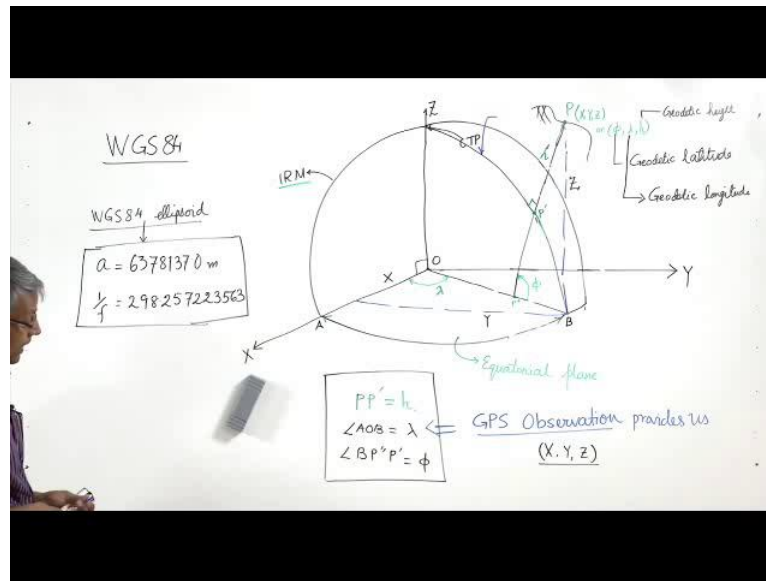 WGS84
WGS84 ellipsoid
a = 63781370 m
1/f = 298257223563
IRM
Z
TP
P(XYZ)
= (ϕ, λ, h)
Geodetic height
Geodetic latitude
Geodetic longitude
h
Z
P'
O
X
λ
ϕ
P"
Y
Y
A
B
X
Equatorial plane
PP' = h.
∠AOB = λ
∠BP"P' = ϕ
<= GPS Observation provides us
(X, Y, Z)